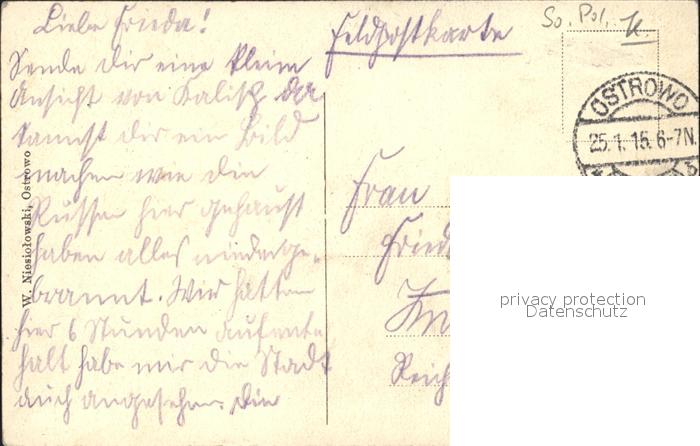 Liebe Frieda!
Sende dir eine kleine
Ansicht von Kalisch da
kannst dir ein Bild
machen wie die
Russen hier gehaust
haben alles niederge-
brannt. Wir hatten
hier 6 Stunden aufent-
halt habe mir die Stadt
auch angesehen. Die
W. Niesiołowski, Ostrowo
Feldpostkarte
So. Pol.
OSTROWO
25.1.15.6-7N.
Frau
Fried
Reich
privacy protection
Datenschutz